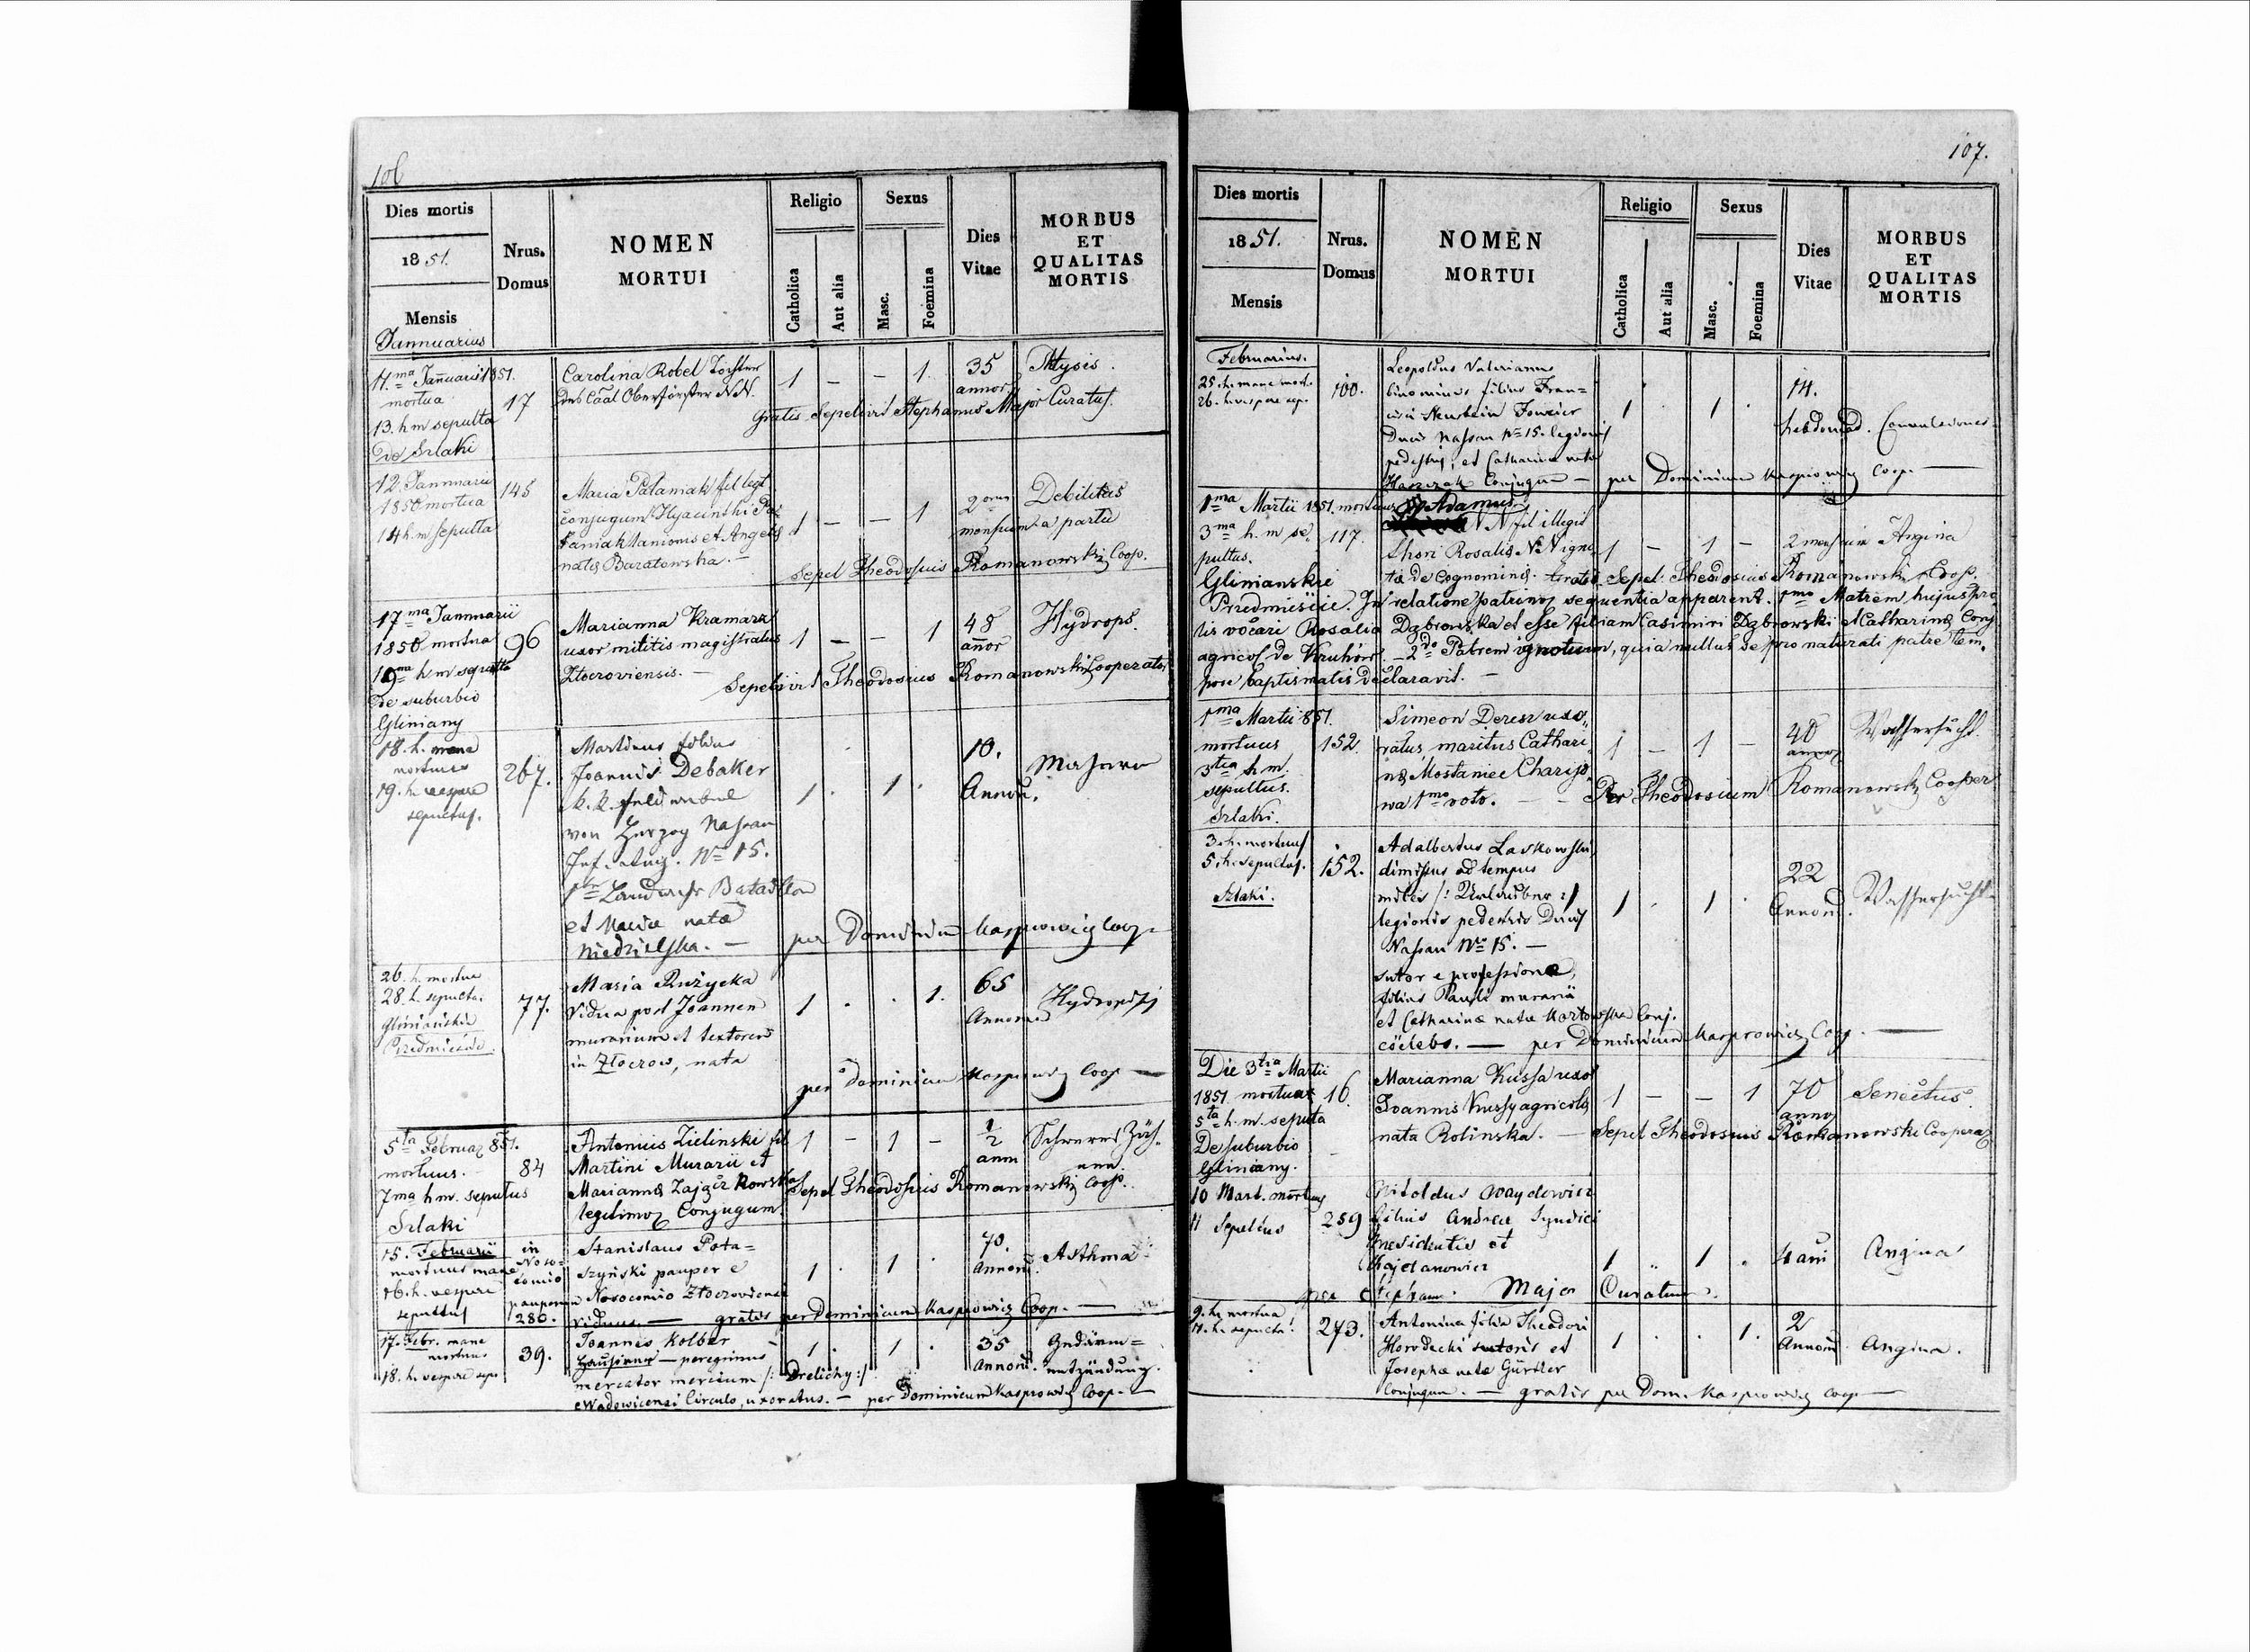 106
Dies mortis
1851.
Mensis
Januuarius
Nrus.
Domus
NOMEN
MORTUI
Religio
Catholica
Aut alia
Sexus
Masc.
Foemina
Dies
Vitae
MORBUS
ET
QUALITAS
MORTIS
11.ma Januarii 1851.
mortua
13. h m sepulta
de Szlaki
17
Carolina Robel Tochter
des Caal Oberförster NN.
1 – – 1.
35
annor
Phtysis.
gratis Sepelivit Stephanus Major Curatus.
12. Jannuarii
1850 mortua
14 h. m sepulta
145
Maria Palaniak fil legt
conjugum Hyacinthi Pa
laniak lanionis et Angela
natae Baratowska. –
1 – – 1
2 orum
mensium
Debilitas
a partu
Sepel Theodosius Romanowski Coop.
17ma Jannuarii
1850 mortua
19ma h m sepulta
de suburbio
Gliniany
96
Marianna Kramarz
uxor militis magistratus
Złocroviensis. –
1 – – 1
48
annor
Hydrops.
Sepelivit Theodosius Romanowski Cooperator
18. h. mane
mortuus
19. h. vespere
sepultus.
267.
Martinus filius
Joannis Debaker
k. k. Feldwebel
von Herzog Nassau
Inf. Reg. No 15.
Landwehr Bataillon
et Mariae natae
Niedzielska. –
1 . 1 .
10.
Annoru.
per Dominicum Kasprowicz Coop.
26. h. mortua
28. h. sepulta.
Gliniańskie
Przedmieście.
77.
Maria Rużycka
Vidua post Joannem
murarium et textorem
in Złoczow, nata
1 . . 1.
65
Annorum
Hydropisi
per Dominicum Kasprowicz Coop –
5ta Februar 851.
mortuus.
7ma h m. sepultus
Szlaki
84
Antonius Zielinski fil
Martini Murarii et
Marianna Zajączkowska
legitimor Conjugum
1 – 1 –
1/2
anni
Schweres Zah.
nen.
Sepel Theodosius Romanowski Coop.
15. Februarii
mortuus mane
16. h. vespere
sepultus
in
Noso=
comio
pauperum
280.
Stanislaus Pota=
szyński pauper e
Nosocomio Złoczoviensi
viduus. – gratis per Dominicum Kasprowicz Coop. –
1 . 1 .
70.
Annoru.
Asthma
17. Febr. mane
mortuus
18. h. vespere sepu
39.
Joannes Kolber
Hausirer – peregrinus
mercator mercium /: Drelichy :/
e Wadowicensi Circulo, uxoratus. – per Dominicum Kasprowicz Coop. –
1. . 1. .
35
Annoru.
Gedärm=
entzündung.
107.
Dies mortis
1851.
Mensis
Nrus.
Domus
NOMEN
MORTUI
Religio
Catholica
Aut alia
Sexus
Masc.
Foemina
Dies
Vitae
MORBUS
ET
QUALITAS
MORTIS
Februarius.
25. h. mane mort.
26. h. vespere sep.
100.
Leopoldus Valerianus
binominus filius Fran=
cisci Fourier
Ducis Nassau No 15. legionis
pedestris, et Catharina nata
Conjugum –
1 . 1 .
14.
hebdomad.
Convulsiones.
per Dominicum Kasprowicz Coop. –
1ma Martii 1851. mortuus
3ma h. m se
pultus.
Glinianskie
Przedmieście.
117.
Adamus
NN fil illegit
thori Rosalis NN igno
ta de Cognominis. Gratis Sepel. Theodosius Romanowski Coop.
1 – 1 –
2 mensium
Angina
In relatione patrinor sequentia apparent. 1mo Matrem hujus pro
lis vocari Rosalia Dąbrowska et esse filiam Casimiri Dąbrowski et Catharina Conj
agricol de Kruhów. – 2do Patrem ignotum, quia nullus se pro naturali patre tem,
pore baptismatis declaravit. –
1ma Martii 851.
mortuus
3tia h m.
sepultus.
Szlaki.
152.
Simeon Deresz uxo,,
ratus maritus Cathari,
na Mostaniec Charyso,
wa 1mo voto. –
1 – 1 –
40
annor
Wassersucht.
Per Theodosium Romanowski Cooper
3. h. mortuus
5. h. sepultus.
Szlaki.
152.
Adalbertus Laskowski,
dimissus ad tempus
miles /: Urlauber :/
legionis pedestris Ducis
Nassau No 15. –
sutor e professione,
filius Pauli murarii
et Catharinae natae Kortowska Conj.
coelebs. – per Dominicum Kasprowicz Coop. –
1 . 1 .
22
Annoru.
Wassersucht.
Die 3tia Martii
1851 mortua
5ta h. m. sepulta
De suburbio
Gliniany.
16
Marianna Kussa uxo
Joannis Kussy agricola
nata Rolinska. –
1 – – 1
70
annor
Senectus
Sepel Theodosius Romanowski Cooperaz
10 Mart. mortuus
11 Sepultus
259
Vitoldus Waydowicz
filius Andrea Syndici
Presidentis et
Majdanowicz
1 " 1 "
4 ani
Angina
per Stephan. Major Curatum.
9. h. mortua
11. h. sepulta.
273.
Antonina filia Theodori
Horodecki sutoris et
Josephae natae Gürtler
Conjugum. – gratis per Dom. Kasprowicz Coop –
1 . . 1.
2
Annoru
Angina.